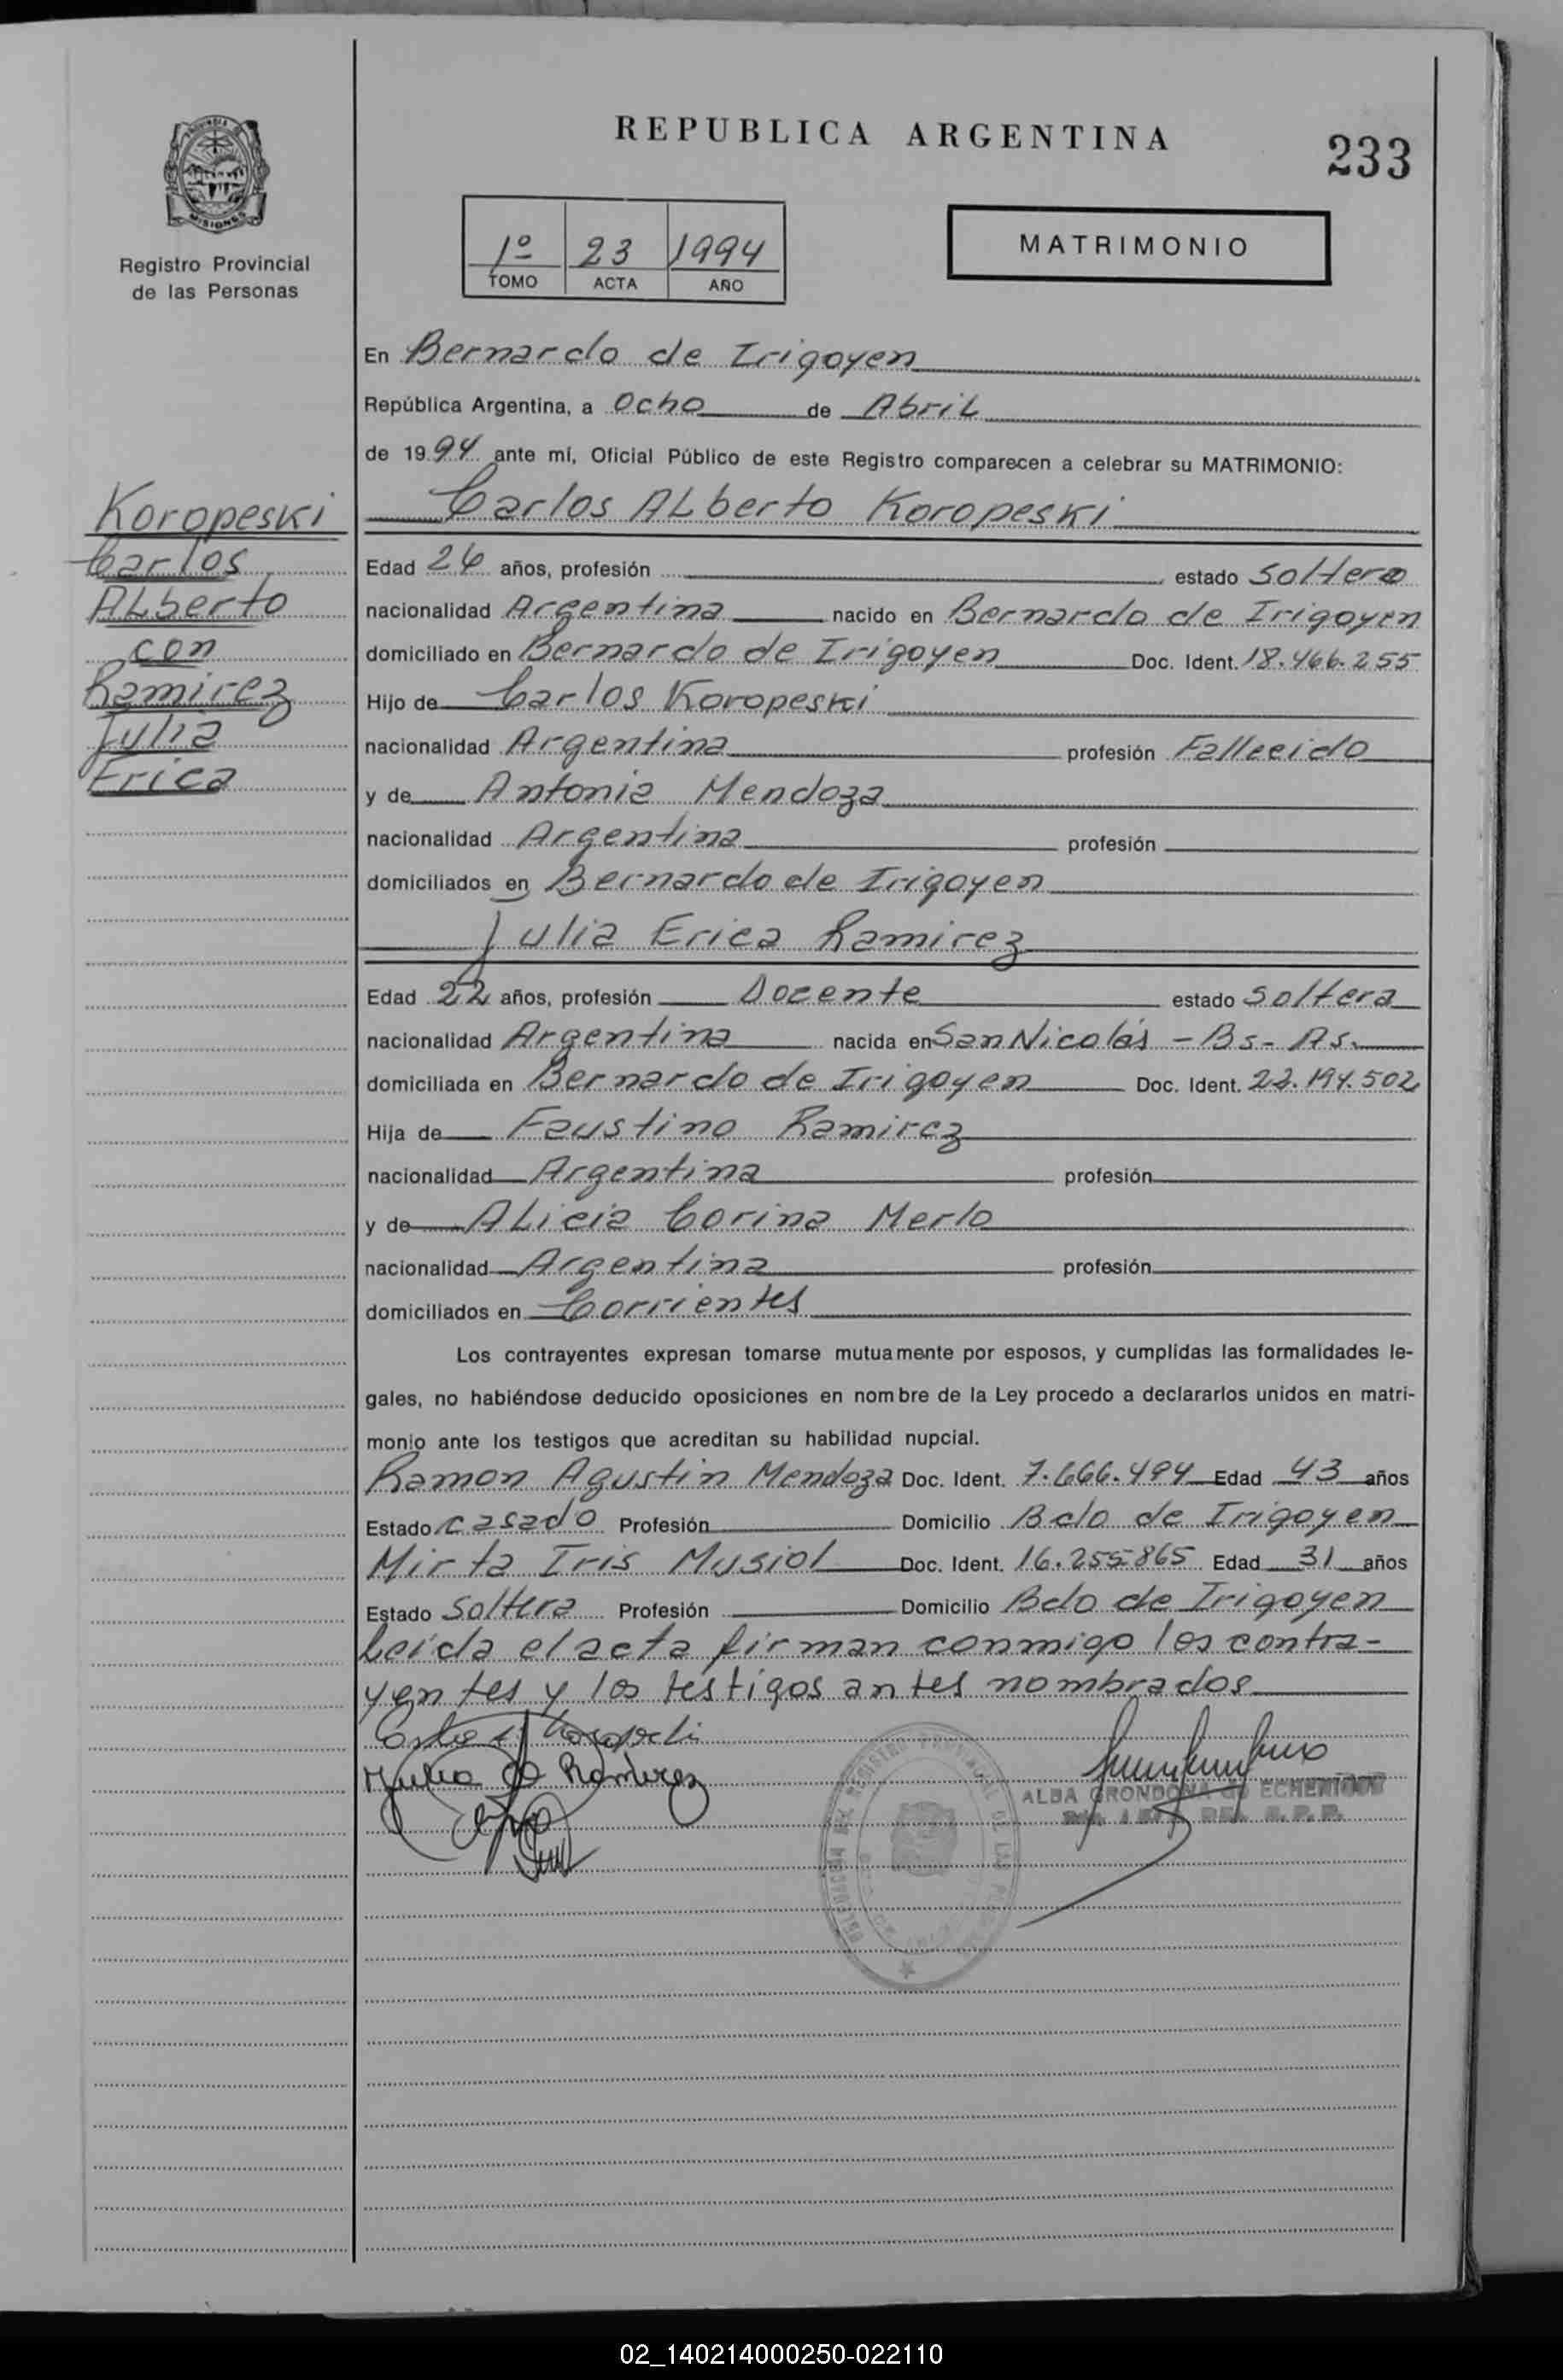 REPUBLICA ARGENTINA
233
MISIONES
Registro Provincial
de las Personas
1º 23 1994
TOMO ACTA AÑO
MATRIMONIO
En Bernardo de Irigoyen
República Argentina, a Ocho de Abril
de 1994 ante mí, Oficial Público de este Registro comparecen a celebrar su MATRIMONIO:
Koropeski
Carlos
Alberto
con
Ramirez
Julia
Erica
Carlos Alberto Koropeski
Edad 26 años, profesión estado soltero
nacionalidad Argentina nacido en Bernardo de Irigoyen
domiciliado en Bernardo de Irigoyen Doc. Ident. 18.466.255
Hijo de Carlos Koropeski
nacionalidad Argentina profesión Fallecido
y de Antonia Mendoza
nacionalidad Argentina profesión
domiciliados en Bernardo de Irigoyen
Julia Erica Ramirez
Edad 22 años, profesión Docente estado soltera
nacionalidad Argentina nacida en San Nicolás - Bs- As.
domiciliada en Bernardo de Irigoyen Doc. Ident. 22.194.502
Hija de Faustino Ramirez
nacionalidad Argentina profesión
y de Alicia Corina Merlo
nacionalidad Argentina profesión
domiciliados en Corrientes
Los contrayentes expresan tomarse mutuamente por esposos, y cumplidas las formalidades le-
gales, no habiéndose deducido oposiciones en nombre de la Ley procedo a declararlos unidos en matri-
monio ante los testigos que acreditan su habilidad nupcial.
Ramon Agustin Mendoza Doc. Ident. 7.666.494 Edad 43 años
Estado casado Profesión Domicilio Bdo de Irigoyen
Mirta Iris Musiol Doc. Ident. 16.255865 Edad 31 años
Estado Soltera Profesión Domicilio Bdo de Irigoyen
Leída el acta firman conmigo los contra-
yentes y los testigos antes nombrados
Julia Ramirez
ALBA GRONDONA
02_140214000250-022110